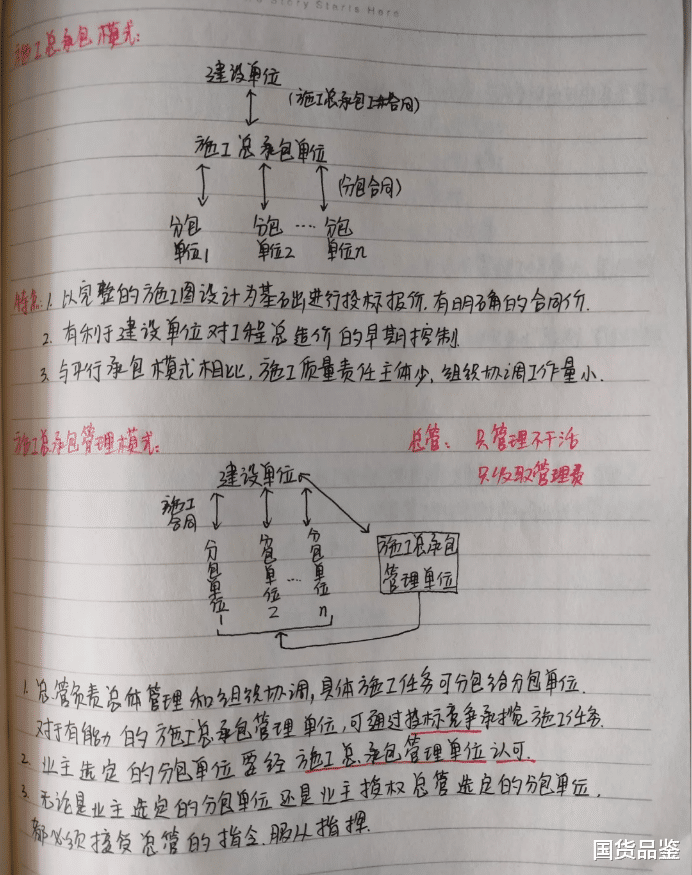 Story Starts Here
施工总承包模式:
建设单位
(施工总承包工井合同)
施工总承包单位
(分包合同)
分包 分包 …… 分包
单位1 单位2 单位n
特点: 1. 以完整的施工图设计为基础出进行投标报价.有明确的合同价.
2. 有利于建设单位对工程总造价的早期控制.
3. 与平行承包模式相比,施工质量责任主体少,组织协调工作量小.
施工总承包管理模式:
总管: 只管理不干活
只收取管理费
建设单位
施工
合同
分包单位1
分包单位2
...
分包单位n
施工总承包
管理单位
1. 总管负责总体管理和组织协调,具体施工任务可分包给分包单位.
对于有能力的施工总承包管理单位,可通过投标竞争承揽施工任务.
2. 业主选定的分包单位要经施工总承包管理单位认可.
3. 无论是业主选定的分包单位还是业主授权总管选定的分包单位.
都必须接受总管的指令.服从指挥.
国货品鉴